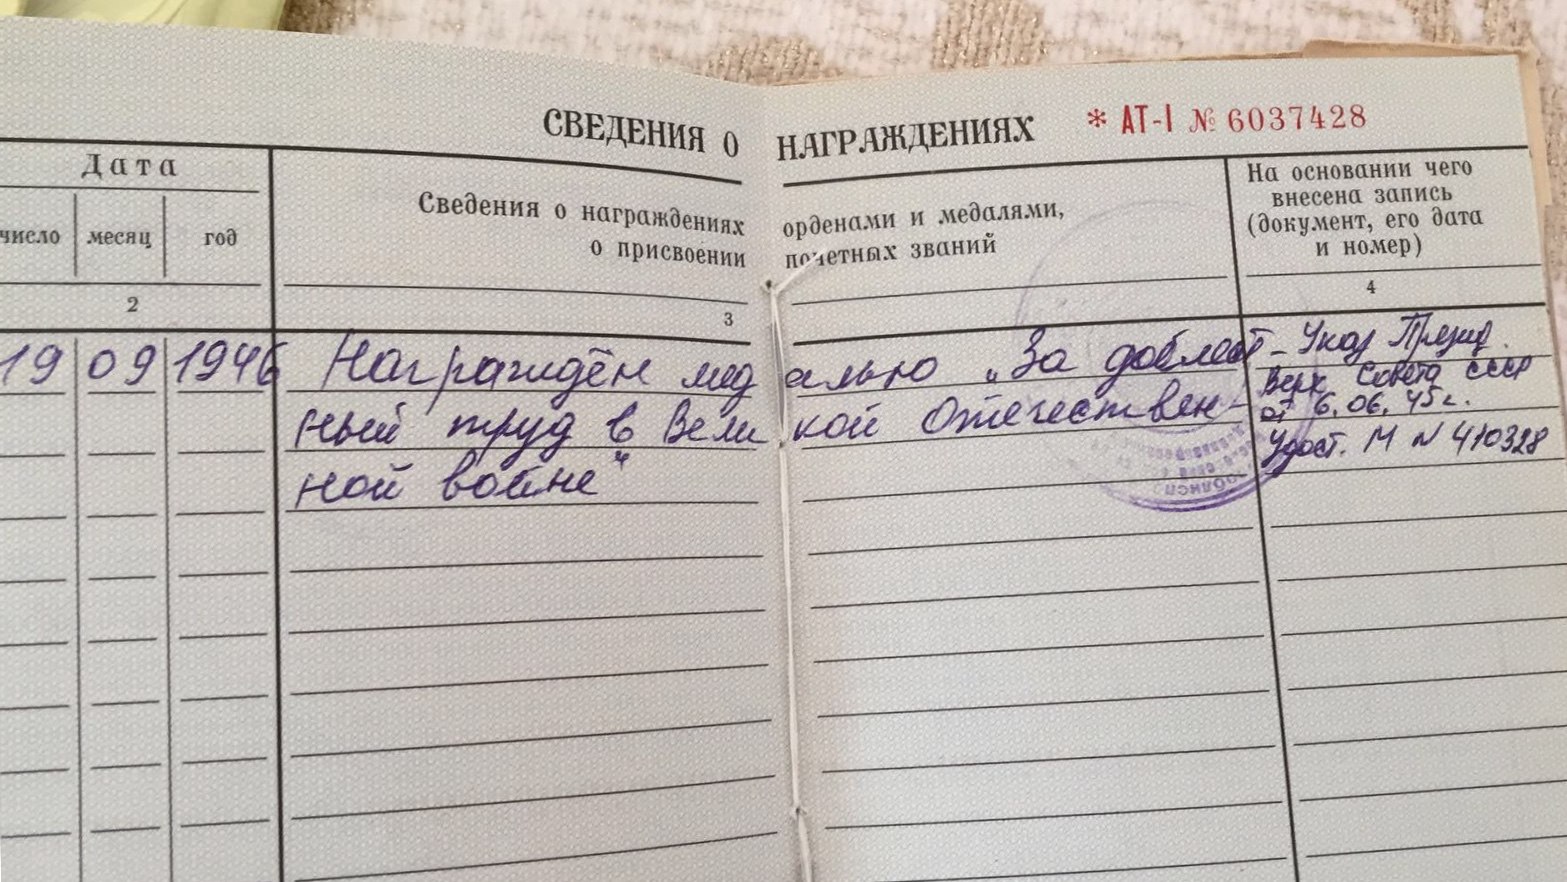 СВЕДЕНИЯ О НАГРАЖДЕНИЯХ * АТ-I № 6037428
Дата
число месяц год
Сведения о награждениях орденами и медалями,
о присвоении почетных званий
На основании чего
внесена запись
(документ, его дата
и номер)
2 3 4
19 09 1946 Награждён медалью „За доблест-
ный труд в Великой Отечествен-
ной войне“
Указ Презид.
Верх. Совета СССР
от 6.06.45г.
Удост. М N 410328